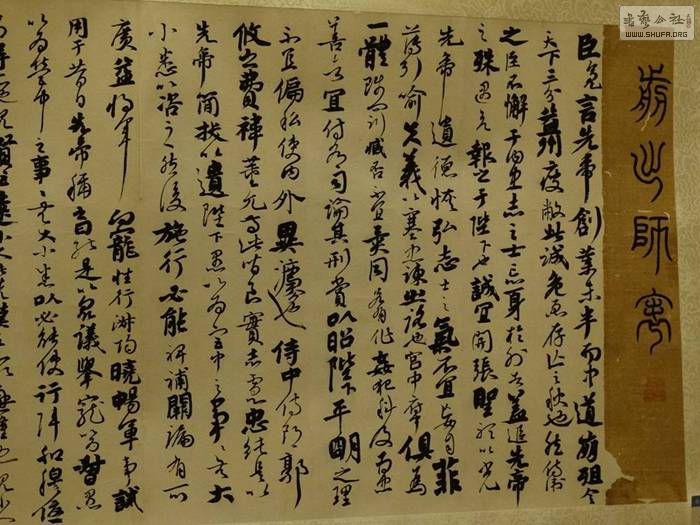 書藝公社
WWW.SHUFA.ORG
前出師表
臣亮言先帝創業未半而中道崩殂今
天下三分益州疲敝此誠危急存亡之秋也然侍衛
之臣不懈于內忠志之士忘身於外者蓋追先帝
之殊遇欲報之于陛下也誠宜開張聖聽以光
先帝遺德恢弘志士之氣不宜妄自菲
薄引喻失義以塞忠諫之路也宮中府中俱為
一體陟罰臧否不宜異同若有作姦犯科及為忠
善者宜付有司論其刑賞以昭陛下平明之理
不宜偏私使內外異法也侍中侍郎郭
攸之費禕董允等此皆良實志慮忠純是以
先帝簡拔以遺陛下愚以為宮中之事事無大
小悉以咨之然後施行必能裨補闕漏有所
廣益將軍向寵性行淑均曉暢軍事試
用于昔日先帝稱曰能是以眾議舉寵為督愚
以為營中之事事無大小悉以必能使行陣和穆優
賢臣遠小人